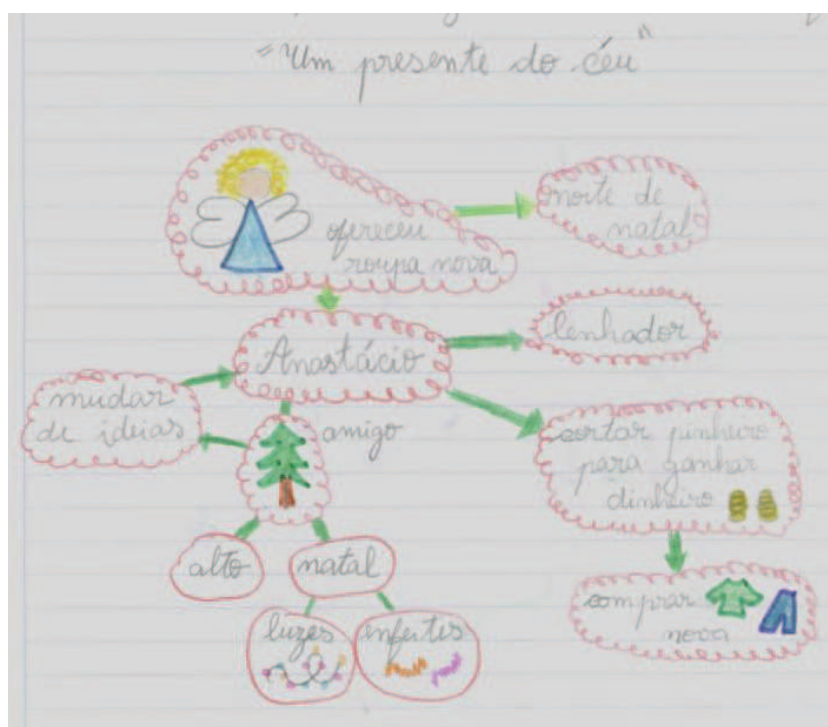 "Um presente do céu"
ofereceu
roupa nova
noite de
natal
Anastácio
lenhador
mudar
de ideias
amigo
cortar pinheiro
para ganhar
dinheiro
alto
natal
luzes
enfeites
comprar
nova